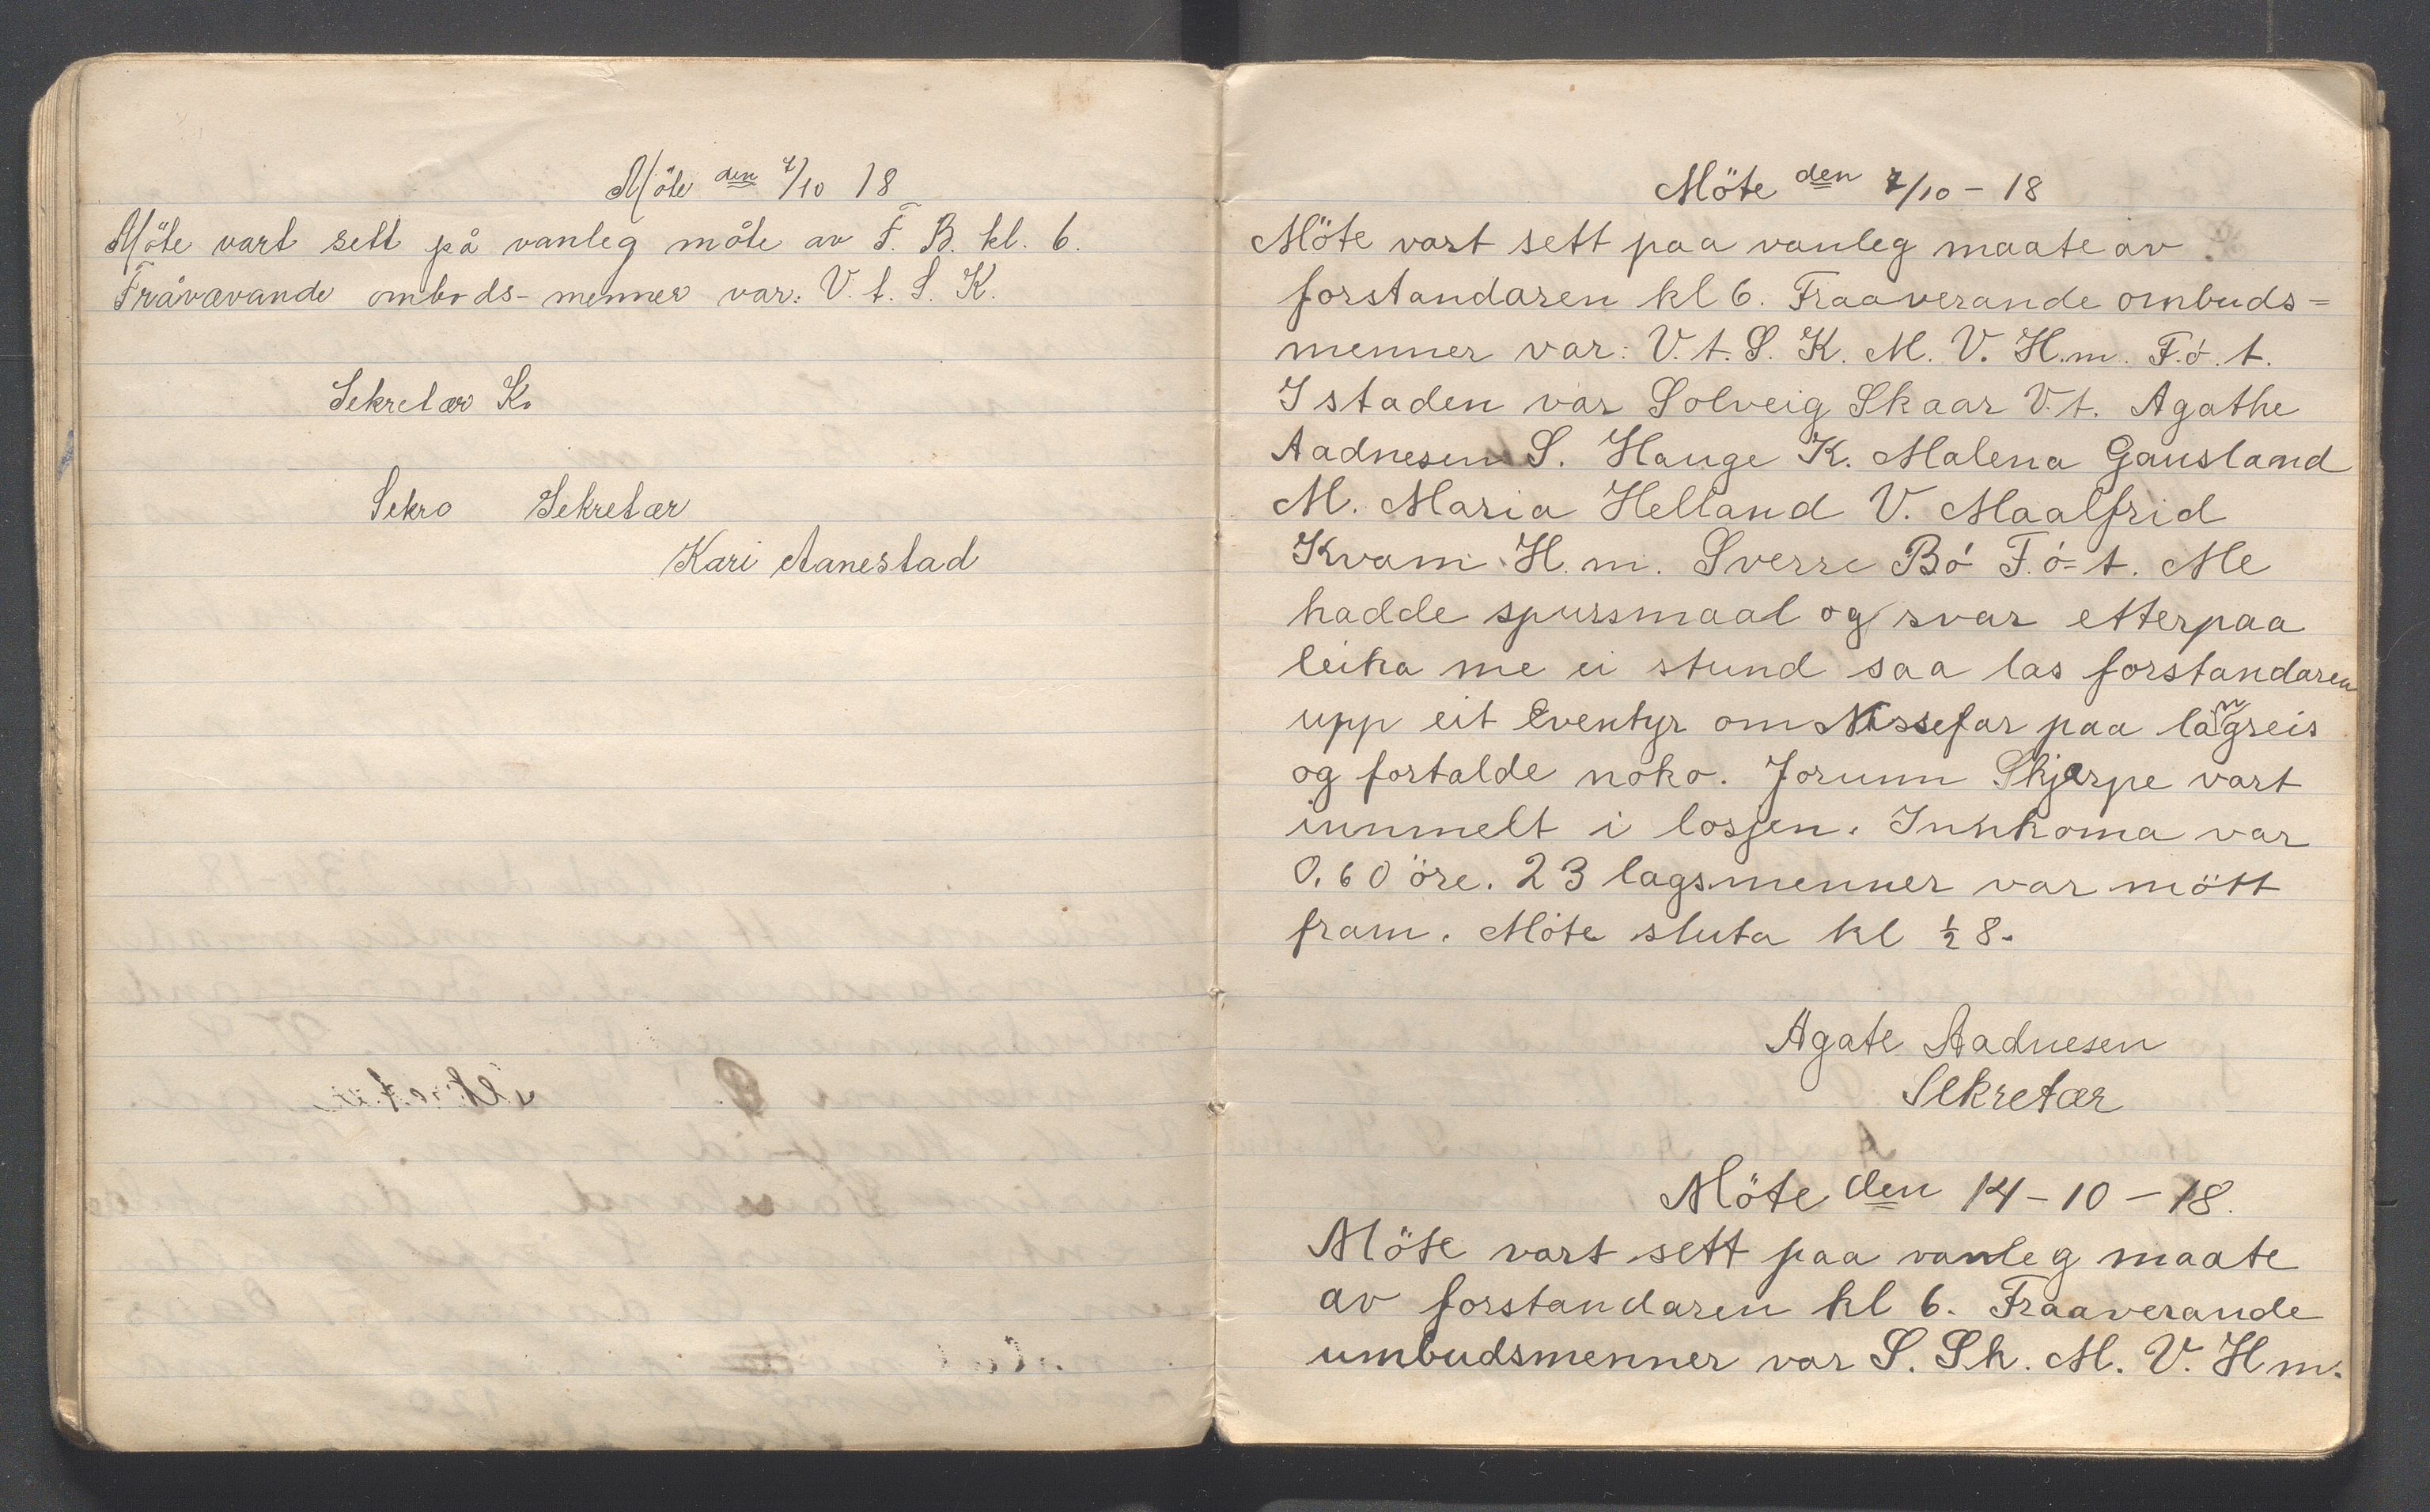 Möte den 7/10 18
Möte vart sett på vanleg måte av F. B. kl. 6.
Fråværande ombods-menner var: V. t. S. K.
Sekretær K.
Sekre Sekretær
Kari Aanestad
Möte den 7/10 - 18
Möte vart sett paa vanleg maate av
forstandaren kl 6. Fraaverande ombuds=
menner var: V. t. S. K. M. V. H.m. F.ó.t.
I staden var Solveig Skaar V.t. Agathe
Aadnesen S. Hauge K. Malena Gausland
M. Maria Helland V. Maalfrid
Kvam H.m. Sverre Bó F.ó=t. Me
hadde spursmaal og svar etterpaa
leika me ei stund saa las forstandaren
upp eit Eventyr om Nissefar paa langreis
og fortalde noko. Jorunn Skjerpe vart
innmelt i losjen. Innkoma var
0.60 öre. 23 lagsmenner var mött
fram. Möte sluta kl ½ 8.
Agate Aadnesen
Sekretær
Möte den 14-10-18.
Möte vart sett paa vanleg maate
av forstandaren kl 6. Fraaverande
umbudsmenner var S. Sk. M. V. Hm.